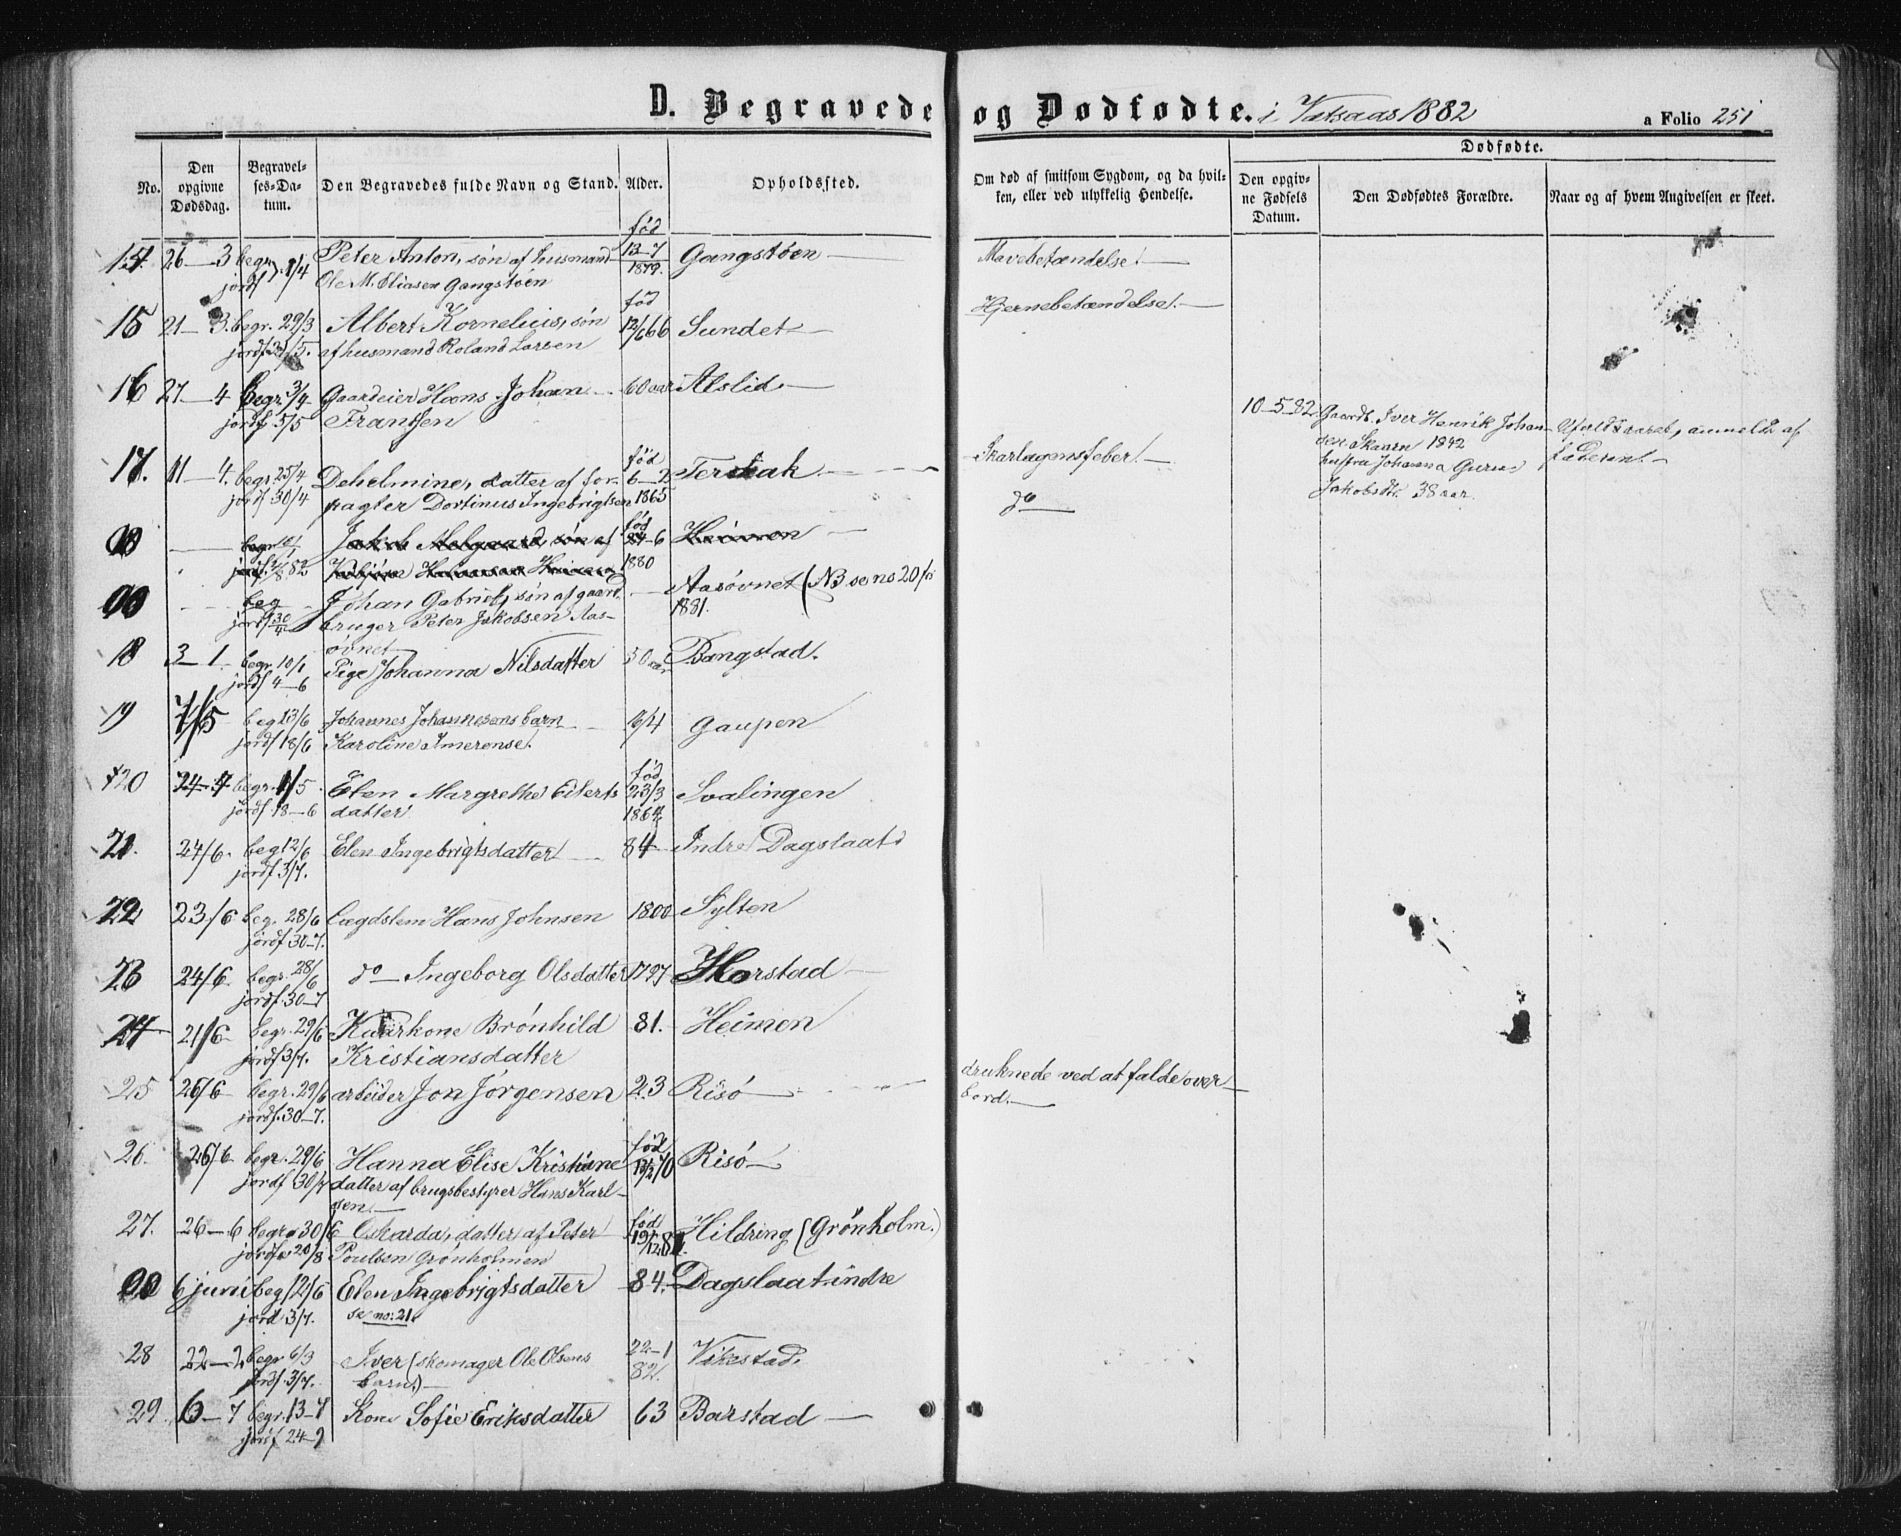 D. Begravede og Dødfødte. i Vatsaas 1882
a Folio 251
Dødfødte.
No.
Den opgivne Dødsdag.
Begravelses-Datum.
Den Begravedes fulde Navn og Stand.
Alder.
Opholdssted.
Om død af smitsom Sygdom, og da hvilken, eller ved ulykkelig Hendelse.
Den opgivne Fødsels Datum.
Den Dødfødtes Forældre.
Naar og af hvem Angivelsen er skeet.
14. 26-3 begr. jordf 9/4 Peter Anton, søn af husmand fød 13-7 1879. Gangstøen Mavebetændelse.
Ole M. Eliasen Gangstøen
15 21-3. begr. 29/3 Albert Kornelius, søn fød 12/6 66 Sundet Hjernebetændelse.
jordf af husmand Roland Larsen
16 27-4 begr. jordf 5/5 Gaardeier Hans Johan 60 aar Alslid
Frantsen
10-5-82. Gaardb. Iver Henrik Johan-
sen Skaarn 1842
hustru Johanna
Jakobsdtr. 38 aar.
anmeldt af
faderen.
17. 11-4. begr. 25/4 Dehelmine, datter af for- fød 6-2 1865 Terraak Skarlagensfeber.
jordf 30/4 pagter Dortinus Ingebrigtsen
do
begr. Jakob Melgaard, søn af fød 24-6 1880 Heimen
jordf. /8 82
beg jordf 30/4 Johan Gabriel, søn af gaard- Aasøvnet (NB se no 20 for 1881.
bruger Peter Jakobsen Aas-
øvnet
18 3-1 begr. 10/1 Pige Johanna Nilsdatter 30 aar Bangstad.
jordf 4-6
19 7/5 beg 13/6 Johannes Johannesens barn 6/4 Gaupen
jordf 18/6 Karoline Imerense.
20 24-4 begr. 1/5 Elen Margrethe Eilerts fød 23/3 1864 Svalingen
jordf. 18-6 datter
21. 24/6. beg 12/6 Elen Ingebrigtsdatter 84 Indre Dagslaat
jordf. 3/7.
22 23/6 beg. 28/6 Lægdslem Hans Johnsen 1800 Sylten
jordf 30-7.
23 24/6. begr. 28/6 do Ingeborg Olsdatter 1797 Horstad
jordf. 30-7
24 21/6 begr. 29/6 Kaarkone Brønhild 81. Heimen
jordf 3/7. Kristiansdatter
25 26/6 begr. 29/6 arbeider Jon Jørgensen 23 Risø druknede ved at falde over-
jordf. 30-7. bord.
26. 26/6 begr. 29/6 Hanna Elise Kristiane fød 12/2 70 Risø
jordf 30/7 datter af brugsbestyrer Hans Karl-
sen.
27. 26-6 begr. 30/6 Oskarda, datter af Peter fød 19/12 81. Hildring (Grønholm.)
jordf. 20/8 Poulsen Grønholmen
00 6 juni beg 12/6 Elen Ingebrigtsdatter 84. Dagslaat indre
jord 3/7. se no: 21.
28 22-2 begr 6/3 Iver (skomager Ole Olsens 22-1 82. Vikestad.
jordf. 3/7. barn)
29 6-7 begr. 13-7 Kone Sofie Eriksdatter 63 Barstad
jordf 24-9